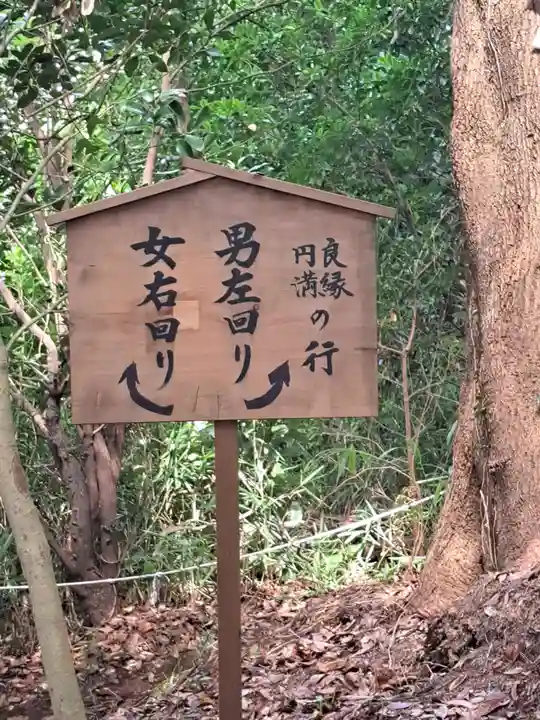 良縁
円満の行
男左回り
女右回り